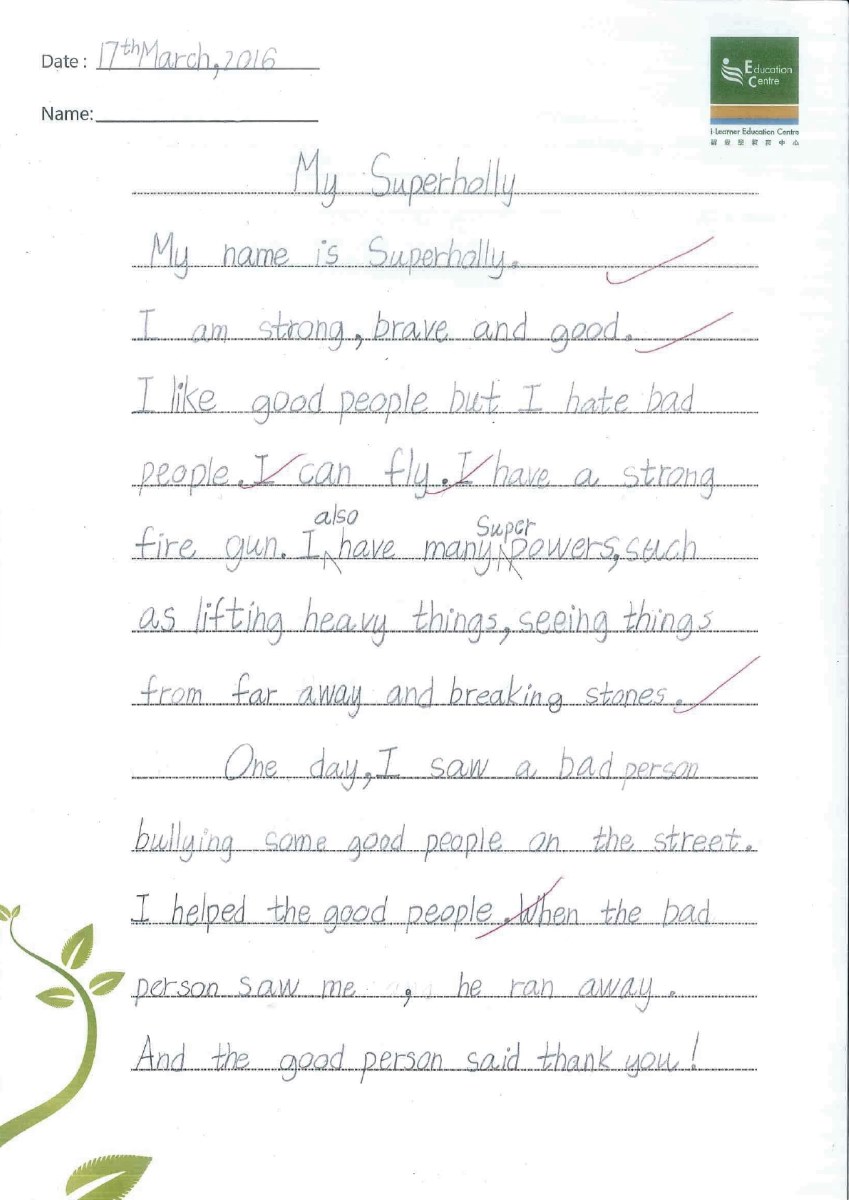 Date : 17th March, 2016
Education
Centre
Name:
i-Learner Education Centre
My Superholly
My name is Superholly.
I am strong, brave and good.
I like good people but I hate bad
people. I can fly. I have a strong
also Super
fire gun. I have many powers, such
as lifting heavy things, seeing things
from far away and breaking stones.
One day, I saw a bad person
bullying some good people on the street.
I helped the good people. When the bad
person saw me , he ran away.
And the good person said thank you!